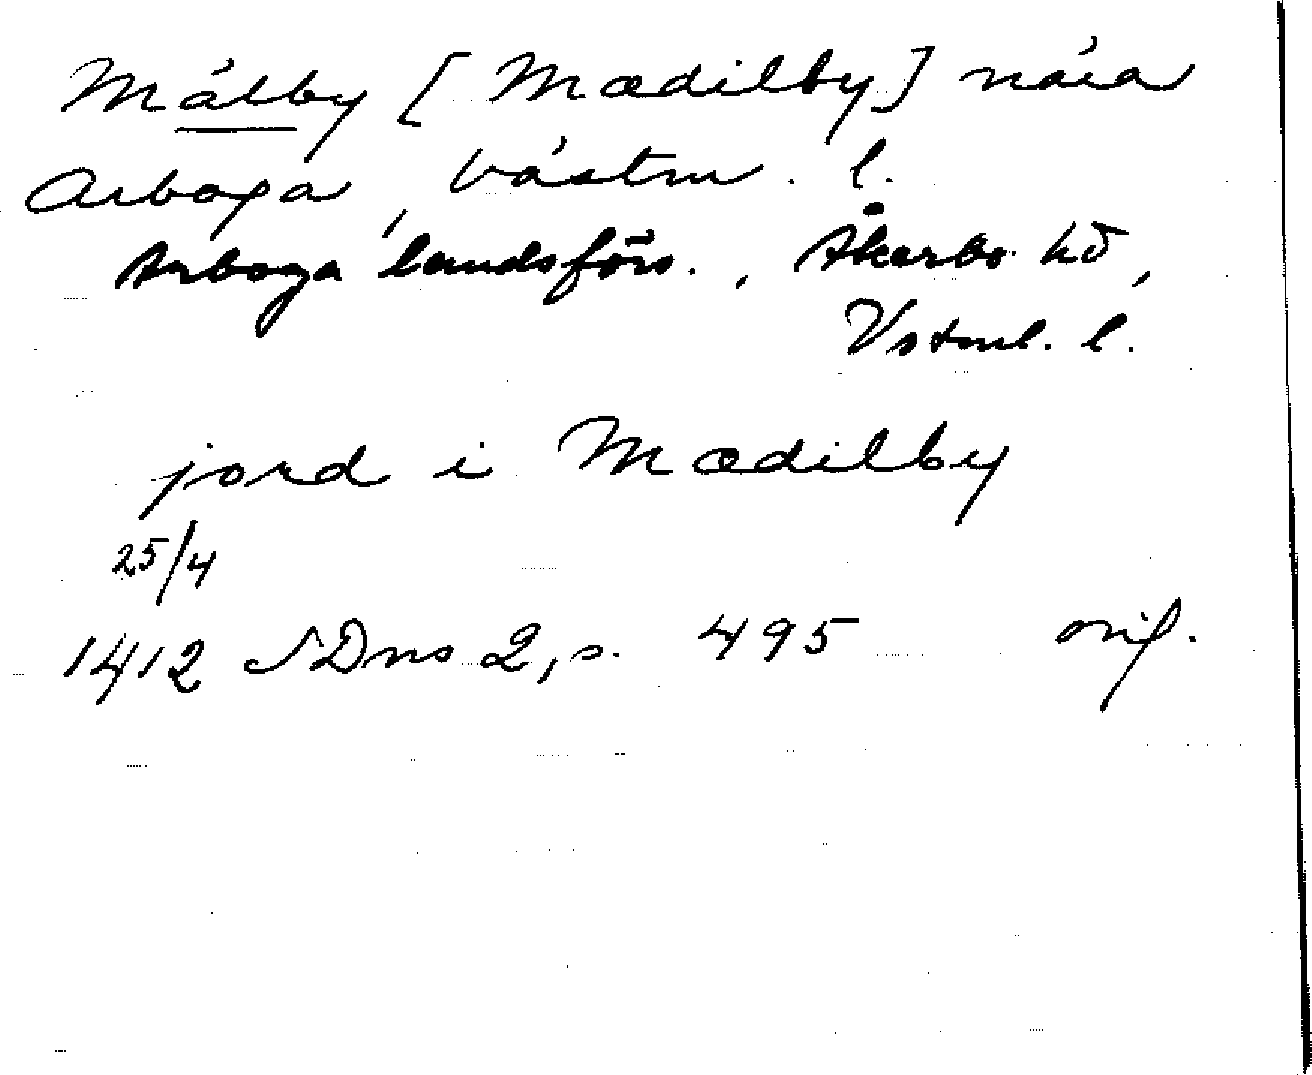 Mälby [Mædilby] nära
Arboga, Västm. l.
Arboga landsförs., Åkerbo hd,
Vstml. l.
jord i Mædilby
25/4
1412 SDns 2, s. 495 orig.